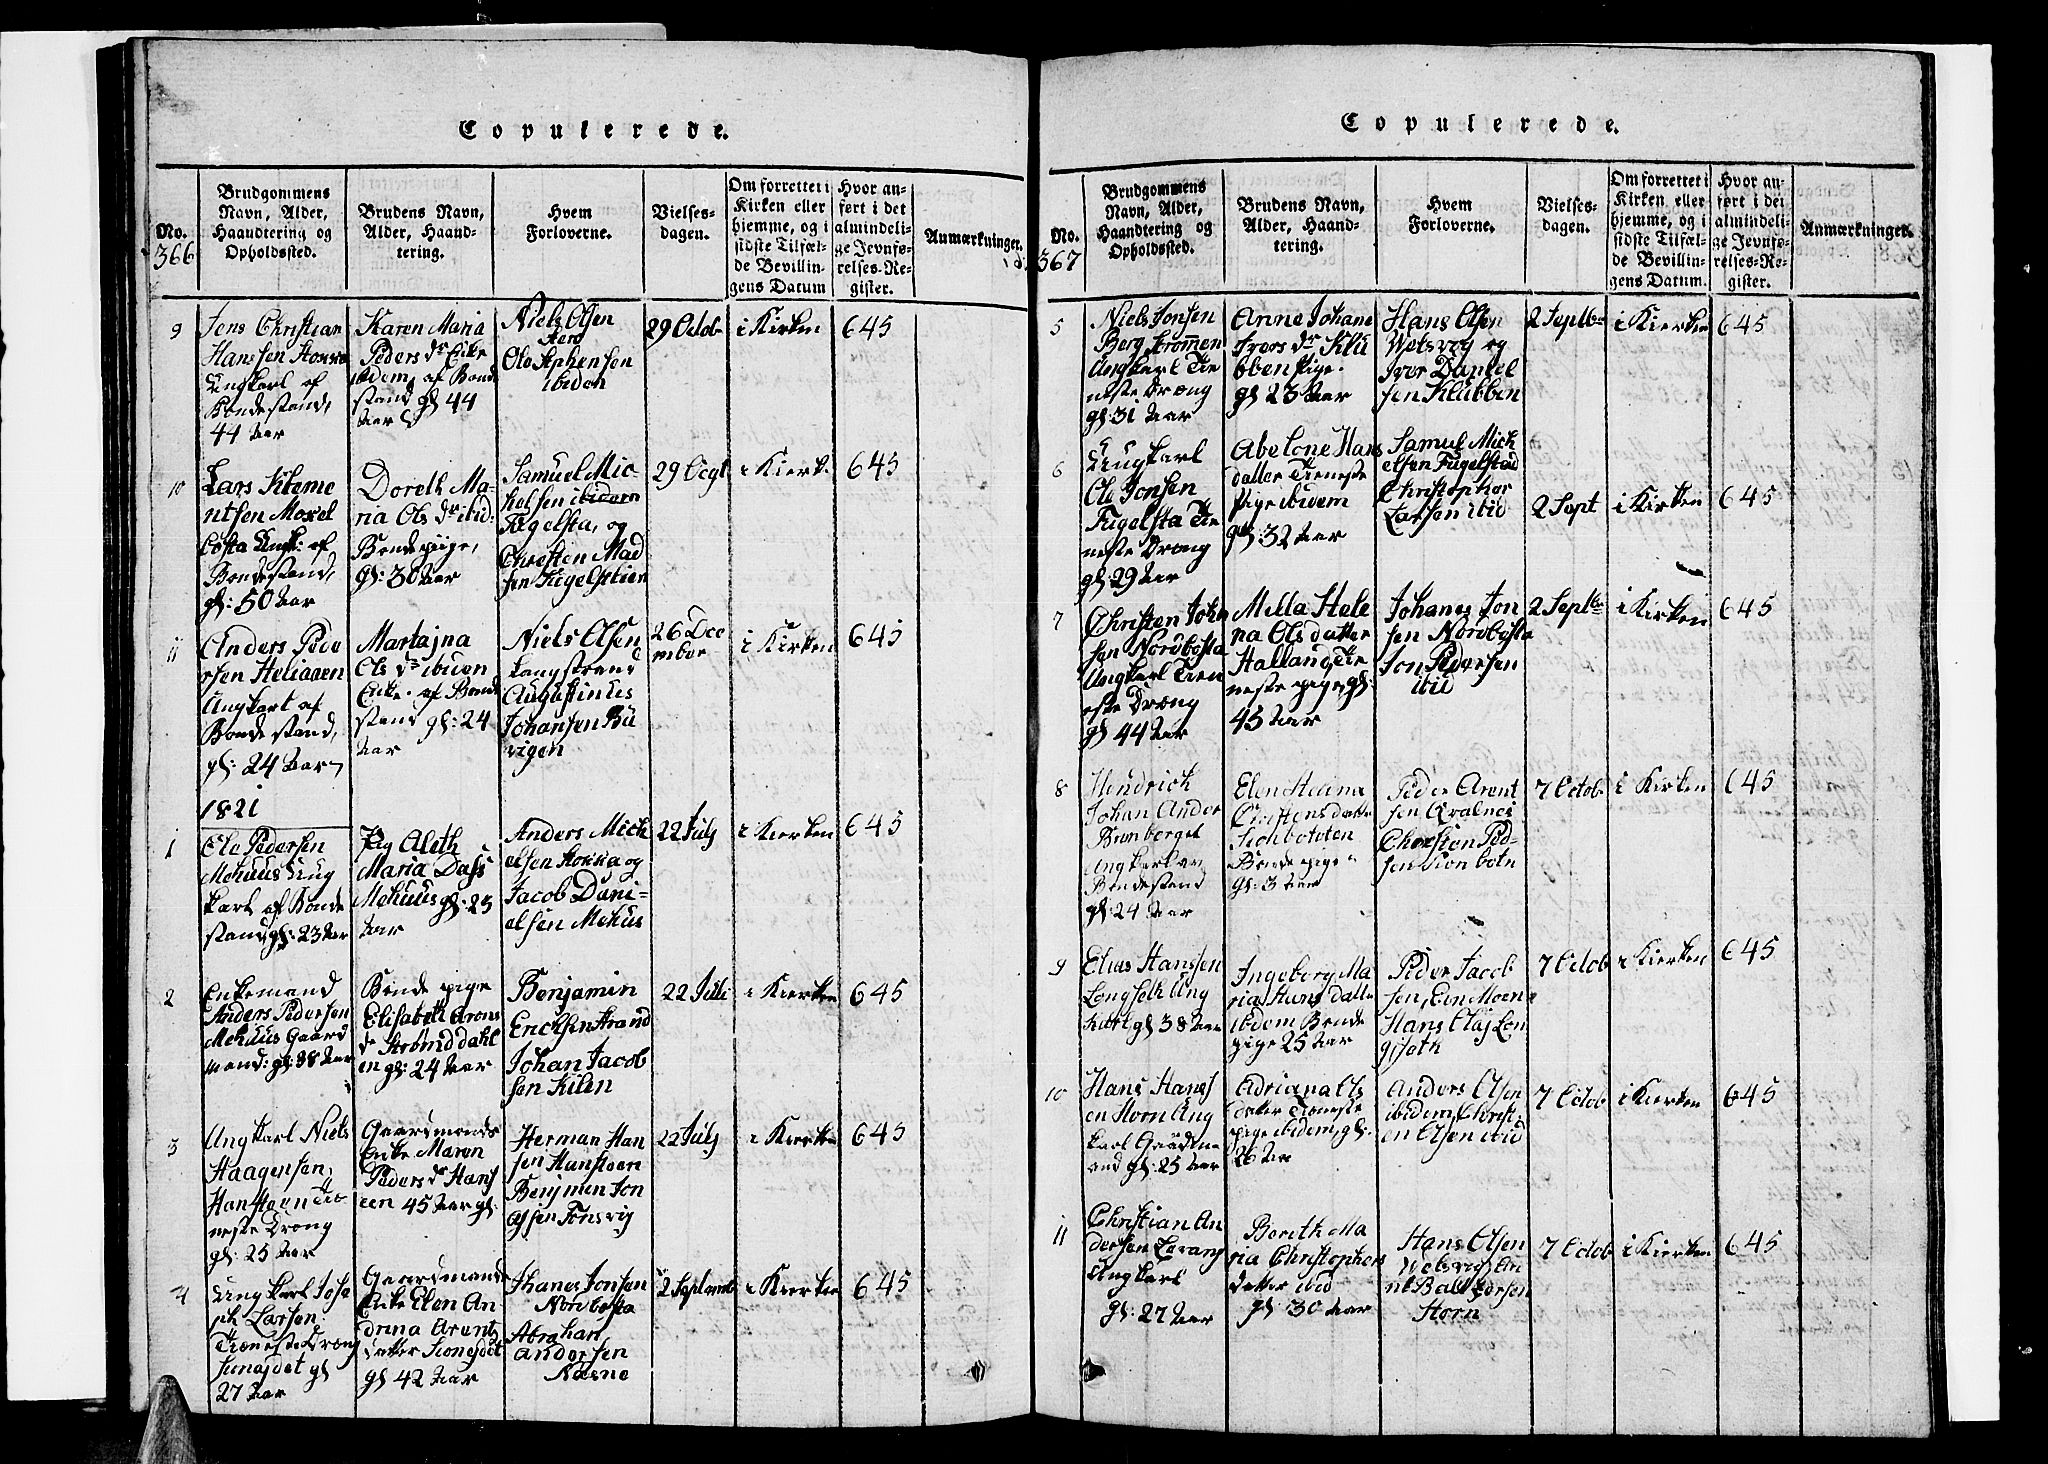 Copulerede.
No.
366
Brudgommens
Navn, Alder,
Haandtering og
Opholdssted.
Brudens Navn,
Alder, Haand-
tering.
Hvem
Forloverne.
Vielses-
dagen.
Om forrettet i
Kirken eller
hjemme, og i
sidste Tilfæl-
de Bevillin-
gens Datum
Hvor an-
ført i det
almindeli-
ge Jevnfø-
relses-Re-
gister.
Anmærkninger.
9
Jens Christian
Hanssen Stoxxa
Ungkarl af
Bondestand,
44 Aar
Karen Maria
Peders dr Enke
ibidem af Bonde
stand gl 44
Aar
Niels Olsen
Ole Stphensen
ibiden
29 Octob
i Kirken
645
10
Lars Kleme
ntsen Moxel
Costa Ungk: af
Bondestand,
gl: 50 Aar
Doreth Ma-
ria Ols dr ibid:
Bondepige,
gl: 30 Aar
Samuel Mic-
helsen ibidem
Fugelsta, og
Christen Mad
sen Fugelstien
29 Ocgt
i Kierk
645
11
Anders Pede
rsen Heligaren
Ungkarl af
Bondestand,
gl: 24 Aar
Martajna
Ols dr ibiden
Enke af Bonde
stand gl: 24
Aar
Niels Olsen
Langstrand
Augustinus
Johansen Bü
vigen
26 Dec
ember
i Kirken
645
1821
1
Ole Pedersen
Mehuus Ung
karl af Bonde
stand gl: 23 Aar
Pig Aleth
Maria Dass
Mehuus gl: 25
Aar
Anders Mich
elsen Stoxxa og
Jacob Dani-
elsen Mehus
22 July
i Kierken
645
2
Enkemand
Anders Pedersen
Mehuus Gaard
mand: gl: 38 Aar
Bonde pige
Elisabeth Arons
d. Strømddahl
en gl: 24 Aar
Benjamin
Erichsen Strand
Johan Jacob
sen Kilen
22 Juli
i Kierken
645
3
Ungkarl Niels
Haagensen,
Hanstoen Tie-
neste Dreng
gl: 25 Aar
Gaardmands
Enke Maren
Peders dr Hans
een 45 Aar gl:
Herman Han
sen Hanstoen
Benjmen Jon
Assen Tonsvig
22 July
i Kierken
645
4
Ungkarl Jose
ph Larsen
Tieneste Dreng
Sungsdet gl
27 Aar
Gaardmands
Enke Elen An
drina Arentz
datter
gl 42 Aar
Jhanes Jonsen
Nordbosta
Abrahan
Andersen
Næsne
2 Septemb
i Kierken
645
Copulerede.
No.
367
Brudgommens
Navn, Alder,
Haandtering og
Opholdssted.
Brudens Navn,
Alder, Haand-
tering.
Hvem
Forloverne.
Vielses-
dagen.
Om forrettet i
Kirken eller
hjemme, og i
sidste Tilfæl-
de Bevillin-
gens Datum.
Hvor an-
ført i det
almindeli-
ge Jevnfø-
relses-Re-
gister.
Anmærkninger.
5
Niels Jonsen
Berg Strømen
Ungkarl Tie
neste Dreng
gl: 31 Aar
Anne Johane
Ivers dr Klü
bben Pige
gl 23 Aar
Hans Olsen
Wetsvog og
Iver Daniel
sen Klübben
2 Septb
i Kierken
645
6
Ungkarl
Ole Jonsen
Fugelsta Tie
neste Dreng
gl: 29 Aar
Abelone Hans
datter Tieneste
Pige ibidem
gl: 32 Aar
Samul Mich
elsen Fugelstad
Christopher
Larsen ibid
2 Sept
i Kirken
645
7
Christen Joha
sen Nordbosta
Ungkarl Tien
este Dreng
gl 44 Aar
Mella Hele
na Ols datter
Halland, Tie
neste pige, gl:
45 Aar
Johanes Jon
sen Nordbysta
Jon Pedersen
ibid
2 Septb
i Kirken
645
8
Hendrich
Johan Ander
Brunberget
Ungkarl en
Bondestand
gl: 24 Aar
Elen Helena
Christensdatter
Sionbototen
Bonde pige
gl: 3 Aar
Peder Arent
sen Qvalnes
Christen Ped-
sen Sionbotn
7 Octob
i Kirken
645
9
Elias Hanssen
Langseth Ung
karl gl 38 Aar
Ingeborg Ma
ria Hans datter
ibidem Bonde
pige 25 Aar
Peder Jacob
sen, Ein Moen
Hans Olaj Lon
gjsæth
7 Octob
i Kierken
645
10
Hans Hanss
en Horn Ung
karl Gaadma
and gl: 25 Aar
Adriana Ols
datter Tieneste
pige ibidem, gl:
26 Aar
Anders Olsen
ibidem, Christ
en Olsen ibid
7 Octob
i Kierken
645
11
Christian An
dersen Levang
Ungkarl
gl: 27 Aar
Bereth Ma
ria Christophers
datter ibid
gl: 30 Aar
Hans Olsen
Wetsvog, En
Baltzersen
Horn
7 Octob
i Kierken
645